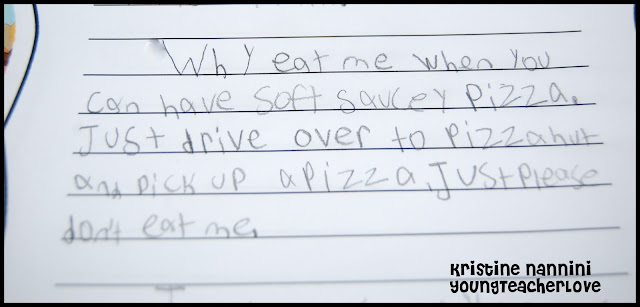 Why eat me when you
can have soft saucey pizza.
Just drive over to pizzahut
and pick up a pizza. Just please
don't eat me.
Kristine Nannini
Young Teacher Love